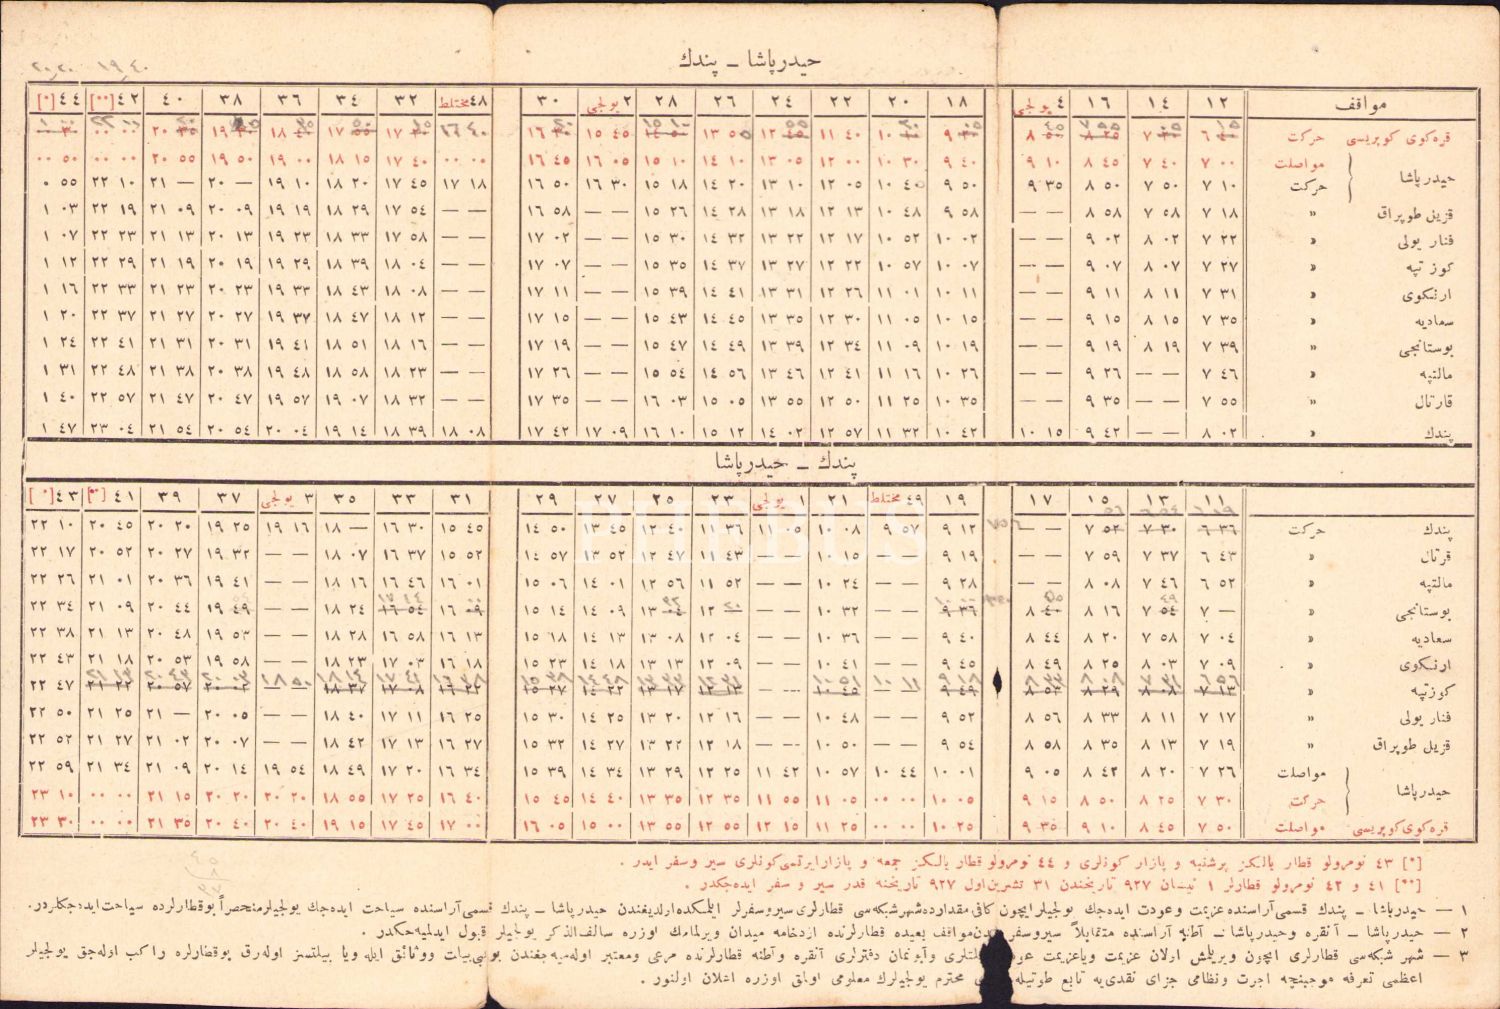 حيدرپاشا ـ پندك
مواقف ١٢ ١٤ ١٦ ٤ يولجى ١٨ ٢٠ ٢٢ ٢٤ ٢٦ ٢٨ ٢ يولجى ٣٠ ٤٨ مختلط ٣٢ ٣٤ ٣٦ ٣٨ ٤٠ ٤٢ [**] ٤٤ [*]
قره‌كوى كوپريسى حركت
حيدرپاشا مواصلت ٧ ٠٠ ٧ ٤٠ ٨ ٤٥ ٩ ١٠ ٩ ٤٠ ١٠ ٣٠ ١٢ ٠٠ ١٣ ٠٥ ١٤ ١٠ ١٥ ١٠ ١٦ ٠٥ ١٦ ٤٥ ٠٠ ٠٠ ١٧ ٤٠ ١٨ ١٥ ١٩ ٠٠ ١٩ ٥٠ ٢٠ ٥٥ ٠٠ ٠٠ ٠٠ ٥٠
حركت ٧ ١٠ ٧ ٥٠ ٨ ٥٠ ٩ ٣٥ ٩ ٥٠ ١٠ ٤٠ ١٢ ٠٥ ١٣ ١٠ ١٤ ٢٠ ١٥ ١٨ ١٦ ٣٠ ١٦ ٥٠ ١٧ ١٨ ١٧ ٤٥ ١٨ ٢٠ ١٩ ١٠ ٢٠ — ٢١ — ٢٢ ١٠ ٠ ٥٥
قزيل طوپراق » ٧ ١٨ ٧ ٥٨ ٨ ٥٨ — — ٩ ٥٨ ١٠ ٤٨ ١٢ ١٣ ١٣ ١٨ ١٤ ٢٨ ١٥ ٢٦ — — ١٦ ٥٨ — — ١٧ ٥٤ ١٨ ٢٩ ١٩ ١٩ ٢٠ ٠٩ ٢١ ٠٩ ٢٢ ١٩ ١ ٠٣
فنار يولى » ٧ ٢٢ ٨ ٠٢ ٩ ٠٢ — — ١٠ ٠٢ ١٠ ٥٢ ١٢ ١٧ ١٣ ٢٢ ١٤ ٣٢ ١٥ ٣٠ — — ١٧ ٠٢ — — ١٧ ٥٨ ١٨ ٣٣ ١٩ ٢٣ ٢٠ ١٣ ٢١ ١٣ ٢٢ ٢٣ ١ ٠٧
كوز تپه » ٧ ٢٧ ٨ ٠٧ ٩ ٠٧ — — ١٠ ٠٧ ١٠ ٥٧ ١٢ ٢٢ ١٣ ٢٧ ١٤ ٣٧ ١٥ ٣٥ — — ١٧ ٠٧ — — ١٨ ٠٤ ١٨ ٣٩ ١٩ ٢٩ ٢٠ ١٩ ٢١ ١٩ ٢٢ ٢٩ ١ ١٢
ارنكوى » ٧ ٣١ ٨ ١١ ٩ ١١ — — ١٠ ١١ ١١ ٠١ ١٢ ٢٦ ١٣ ٣١ ١٤ ٤١ ١٥ ٣٩ — — ١٧ ١١ — — ١٨ ٠٨ ١٨ ٤٣ ١٩ ٣٣ ٢٠ ٢٣ ٢١ ٢٣ ٢٢ ٣٣ ١ ١٦
سعاديه » ٧ ٣٥ ٨ ١٥ ٩ ١٥ — — ١٠ ١٥ ١١ ٠٥ ١٢ ٣٠ ١٣ ٣٥ ١٤ ٤٥ ١٥ ٤٣ — — ١٧ ١٥ — — ١٨ ١٢ ١٨ ٤٧ ١٩ ٣٧ ٢٠ ٢٧ ٢١ ٢٧ ٢٢ ٣٧ ١ ٢٠
بوستانجى » ٧ ٣٩ ٨ ١٩ ٩ ١٩ — — ١٠ ١٩ ١١ ٠٩ ١٢ ٣٤ ١٣ ٣٩ ١٤ ٤٩ ١٥ ٤٧ — — ١٧ ١٩ — — ١٨ ١٦ ١٨ ٥١ ١٩ ٤١ ٢٠ ٣١ ٢١ ٣١ ٢٢ ٤١ ١ ٢٤
مالتپه » ٧ ٤٦ — — ٩ ٢٦ — — ١٠ ٢٦ ١١ ١٦ ١٢ ٤١ ١٣ ٤٦ ١٤ ٥٦ ١٥ ٥٤ — — ١٧ ٢٦ — — ١٨ ٢٣ ١٨ ٥٨ ١٩ ٤٨ ٢٠ ٣٨ ٢١ ٣٨ ٢٢ ٤٨ ١ ٣١
قارتال » ٧ ٥٥ — — ٩ ٣٥ — — ١٠ ٣٥ ١١ ٢٥ ١٢ ٥٠ ١٣ ٥٥ ١٥ ٠٥ ١٦ ٠٣ — — ١٧ ٣٥ — — ١٨ ٣٢ ١٩ ٠٧ ١٩ ٥٧ ٢٠ ٤٧ ٢١ ٤٧ ٢٢ ٥٧ ١ ٤٠
پندك » ٨ ٠٢ — — ٩ ٤٢ ١٠ ١٥ ١٠ ٤٢ ١١ ٣٢ ١٢ ٥٧ ١٤ ٠٢ ١٥ ١٢ ١٦ ١٠ ١٧ ٠٩ ١٧ ٤٢ ١٨ ٠٨ ١٨ ٣٩ ١٩ ١٤ ٢٠ ٠٤ ٢٠ ٥٤ ٢١ ٥٤ ٢٣ ٠٤ ١ ٤٧
پندك ـ حيدرپاشا
١١ ١٣ ١٥ ١٧ ١٩ ٤٩ مختلط ٢١ ١ يولجى ٢٣ ٢٥ ٢٧ ٢٩ ٣١ ٣٣ ٣٥ ٣ يولجى ٣٧ ٣٩ ٤١ [**] ٤٣ [*]
پندك حركت ٦ ٣٦ ٧ ٣٠ ٧ ٥٢ — — ٩ ١٢ ٩ ٥٧ ١٠ ٠٨ ١١ ٠٥ ١١ ٣٦ ١٢ ٤٠ ١٣ ٤٥ ١٤ ٥٠ ١٥ ٤٥ ١٦ ٣٠ ١٨ — ١٩ ١٦ ١٩ ٢٥ ٢٠ ٢٠ ٢٠ ٤٥ ٢٢ ١٠
قرتال » ٦ ٤٣ ٧ ٣٧ ٧ ٥٩ — — ٩ ١٩ — — ١٠ ١٥ — — ١١ ٤٣ ١٢ ٤٧ ١٣ ٥٢ ١٤ ٥٧ ١٥ ٥٢ ١٦ ٣٧ ١٨ ٠٧ — — ١٩ ٣٢ ٢٠ ٢٧ ٢٠ ٥٢ ٢٢ ١٧
مالتپه » ٦ ٥٢ ٧ ٤٦ ٨ ٠٨ — — ٩ ٢٨ — — ١٠ ٢٤ — — ١١ ٥٢ ١٢ ٥٦ ١٤ ٠١ ١٥ ٠٦ ١٦ ٠١ ١٦ ٤٦ ١٨ ١٦ — — ١٩ ٤١ ٢٠ ٣٦ ٢١ ٠١ ٢٢ ٢٦
بوستانجى » ٧ — ٧ ٥٤ ٨ ١٦ ٨ ٤٠ ٩ ٣٦ — — ١٠ ٣٢ — — ١٢ ١٣ ٠٤ ١٤ ٠٩ ١٥ ١٤ ١٦ ٠٩ ١٦ ٥٤ ١٨ ٢٤ — — ١٩ ٤٩ ٢٠ ٤٤ ٢١ ٠٩ ٢٢ ٣٤
سعاديه » ٧ ٠٤ ٧ ٥٨ ٨ ٢٠ ٨ ٤٤ ٩ ٤٠ — — ١٠ ٣٦ — — ١٢ ٠٤ ١٣ ٠٨ ١٤ ١٣ ١٥ ١٨ ١٦ ١٣ ١٦ ٥٨ ١٨ ٢٨ — — ١٩ ٥٣ ٢٠ ٤٨ ٢١ ١٣ ٢٢ ٣٨
ارنكوى » ٧ ٠٩ ٨ ٠٣ ٨ ٢٥ ٨ ٤٩ ٩ ٤٥ — — ١٠ ٤١ — — ١٢ ٠٩ ١٣ ١٣ ١٤ ١٨ ١٥ ٢٣ ١٦ ١٨ ١٧ ٠٣ ١٨ ٢٣ — — ١٩ ٥٨ ٢٠ ٥٣ ٢١ ١٨ ٢٢ ٤٣
كوزتپه » ٧ ١٣ ٨ ٠٨ ٨ ٢٩ ٨ ٥٣ ٩ ٤٩ ١٠ ٤٥ ١٢ ١٣ ١٣ ١٧ ١٤ ٢٢ ١٥ ٢٧ ١٦ ٢٢ ١٧ ٠٨ ١٨ ٣٧ ٢٠ ٠٢ ٢٠ ٥٧ ٢١ ٢٢ ٢٢ ٤٧
فنار يولى » ٧ ١٧ ٨ ١١ ٨ ٣٣ ٨ ٥٦ ٩ ٥٢ — — ١٠ ٤٨ — — ١٢ ١٦ ١٣ ٢٠ ١٤ ٢٥ ١٥ ٣٠ ١٦ ٢٥ ١٧ ١١ ١٨ ٤٠ — — ٢٠ ٠٥ ٢١ — ٢١ ٢٥ ٢٢ ٥٠
قزيل طوپراق » ٧ ١٩ ٨ ١٣ ٨ ٣٥ ٨ ٥٨ ٩ ٥٤ — — ١٠ ٥٠ — — ١٢ ١٨ ١٣ ٢٢ ١٤ ٢٧ ١٥ ٣٢ ١٦ ٢٧ ١٧ ١٣ ١٨ ٤٢ — — ٢٠ ٠٧ ٢١ ٠٢ ٢١ ٢٧ ٢٢ ٥٢
حيدرپاشا مواصلت ٧ ٢٦ ٨ ٢٠ ٨ ٤٢ ٩ ٠٥ ١٠ ٠١ ١٠ ٤٤ ١٠ ٥٧ ١١ ٤٢ ١٢ ٢٥ ١٣ ٢٩ ١٤ ٣٤ ١٥ ٣٩ ١٦ ٣٤ ١٧ ٢٠ ١٨ ٤٩ ١٩ ٥٤ ٢٠ ١٤ ٢١ ٠٩ ٢١ ٣٤ ٢٢ ٥٩
حركت ٧ ٣٠ ٨ ٢٥ ٨ ٥٠ ٩ ١٥ ١٠ ٠٥ ٠٠ ٠٠ ١١ ٠٥ ١١ ٥٥ ١٢ ٣٥ ١٣ ٣٥ ١٤ ٤٠ ١٥ ٤٥ ١٦ ٤٠ ١٧ ٢٥ ١٨ ٥٥ ٢٠ ٢٠ ٢٠ ٢٠ ٢١ ١٥ ٠٠ ٠٠ ٢٣ ١٠
قره‌كوى كوپريسى مواصلت ٧ ٥٠ ٨ ٤٥ ٩ ١٠ ٩ ٣٥ ١٠ ٢٥ ٠٠ ٠٠ ١١ ٢٥ ١٢ ١٥ ١٢ ٥٥ ١٣ ٥٥ ١٥ ٠٠ ١٦ ٠٥ ١٧ ٠٠ ١٧ ٤٥ ١٩ ١٥ ٢٠ ٤٠ ٢٠ ٤٠ ٢١ ٣٥ ٠٠ ٠٠ ٢٣ ٣٠
[*] ٤٣ نومرولو قطار يالكز پرشنبه و پازار كونلرى و ٤٤ نومرولو قطار يالكز جمعه و پازار ايرتسى كونلرى سير وسفر ايدر .
[**] ٤١ و ٤٢ نومرولو قطارلر ١ نيسان ٩٢٧ تاريخندن ٣١ تشرين اول ٩٢٧ تاريخنه قدر سير و سفر ايده‌جكدر .
١ — حيدرپاشا ـ پندك قسمى آراسنده عزيمت وعودت ايده‌جك يولجيلر ايچون كافى مقدارده شهر شبكه‌سى قطارلرى سير وسفر ايتمكده اولديغندن حيدرپاشا ـ پندك قسمى آراسنده سياحت ايده‌جك يولجيلر منحصراً بو قطارلرده سياحت ايده‌جكلردر.
٢ — حيدرپاشا ـ آنقره وحيدرپاشا ـ آطنه آراسنده متقابلاً سير وسفر مواقف بعيده قطارلرنده ازدحامه ميدان ويرلمامك اوزره سالف الذكر يولجيلر قبول ايدلميه‌جكدر .
٣ — شهر شبكه‌سى قطارلرى ايچون ويريلمش اولان عزيمت وياعزيمت وآبونمان دفترلرى آنقره وآطنه قطارلرنده مرعى ومعتبر اولميه‌جغندن بو وثائق ايله ويا بيلتسز اوله‌رق بو قطارلره راكب اوله‌جق يولجيلر
اعظمى تعرفه موجبنجه اجرت ونظامى جزاى نقدى‌يه تابع محترم يولجيلرك معلومى اولمق اوزره اعلان اولنور .
PHEBUS